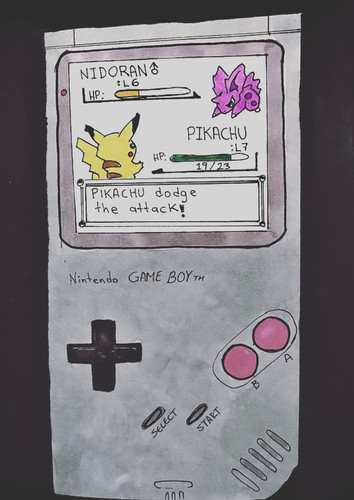 NIDORAN♂
:L6
HP:
PIKACHU
:L7
HP:
19/23
PIKACHU dodge
the attack!
Nintendo GAME BOY TM
A
B
SELECT START